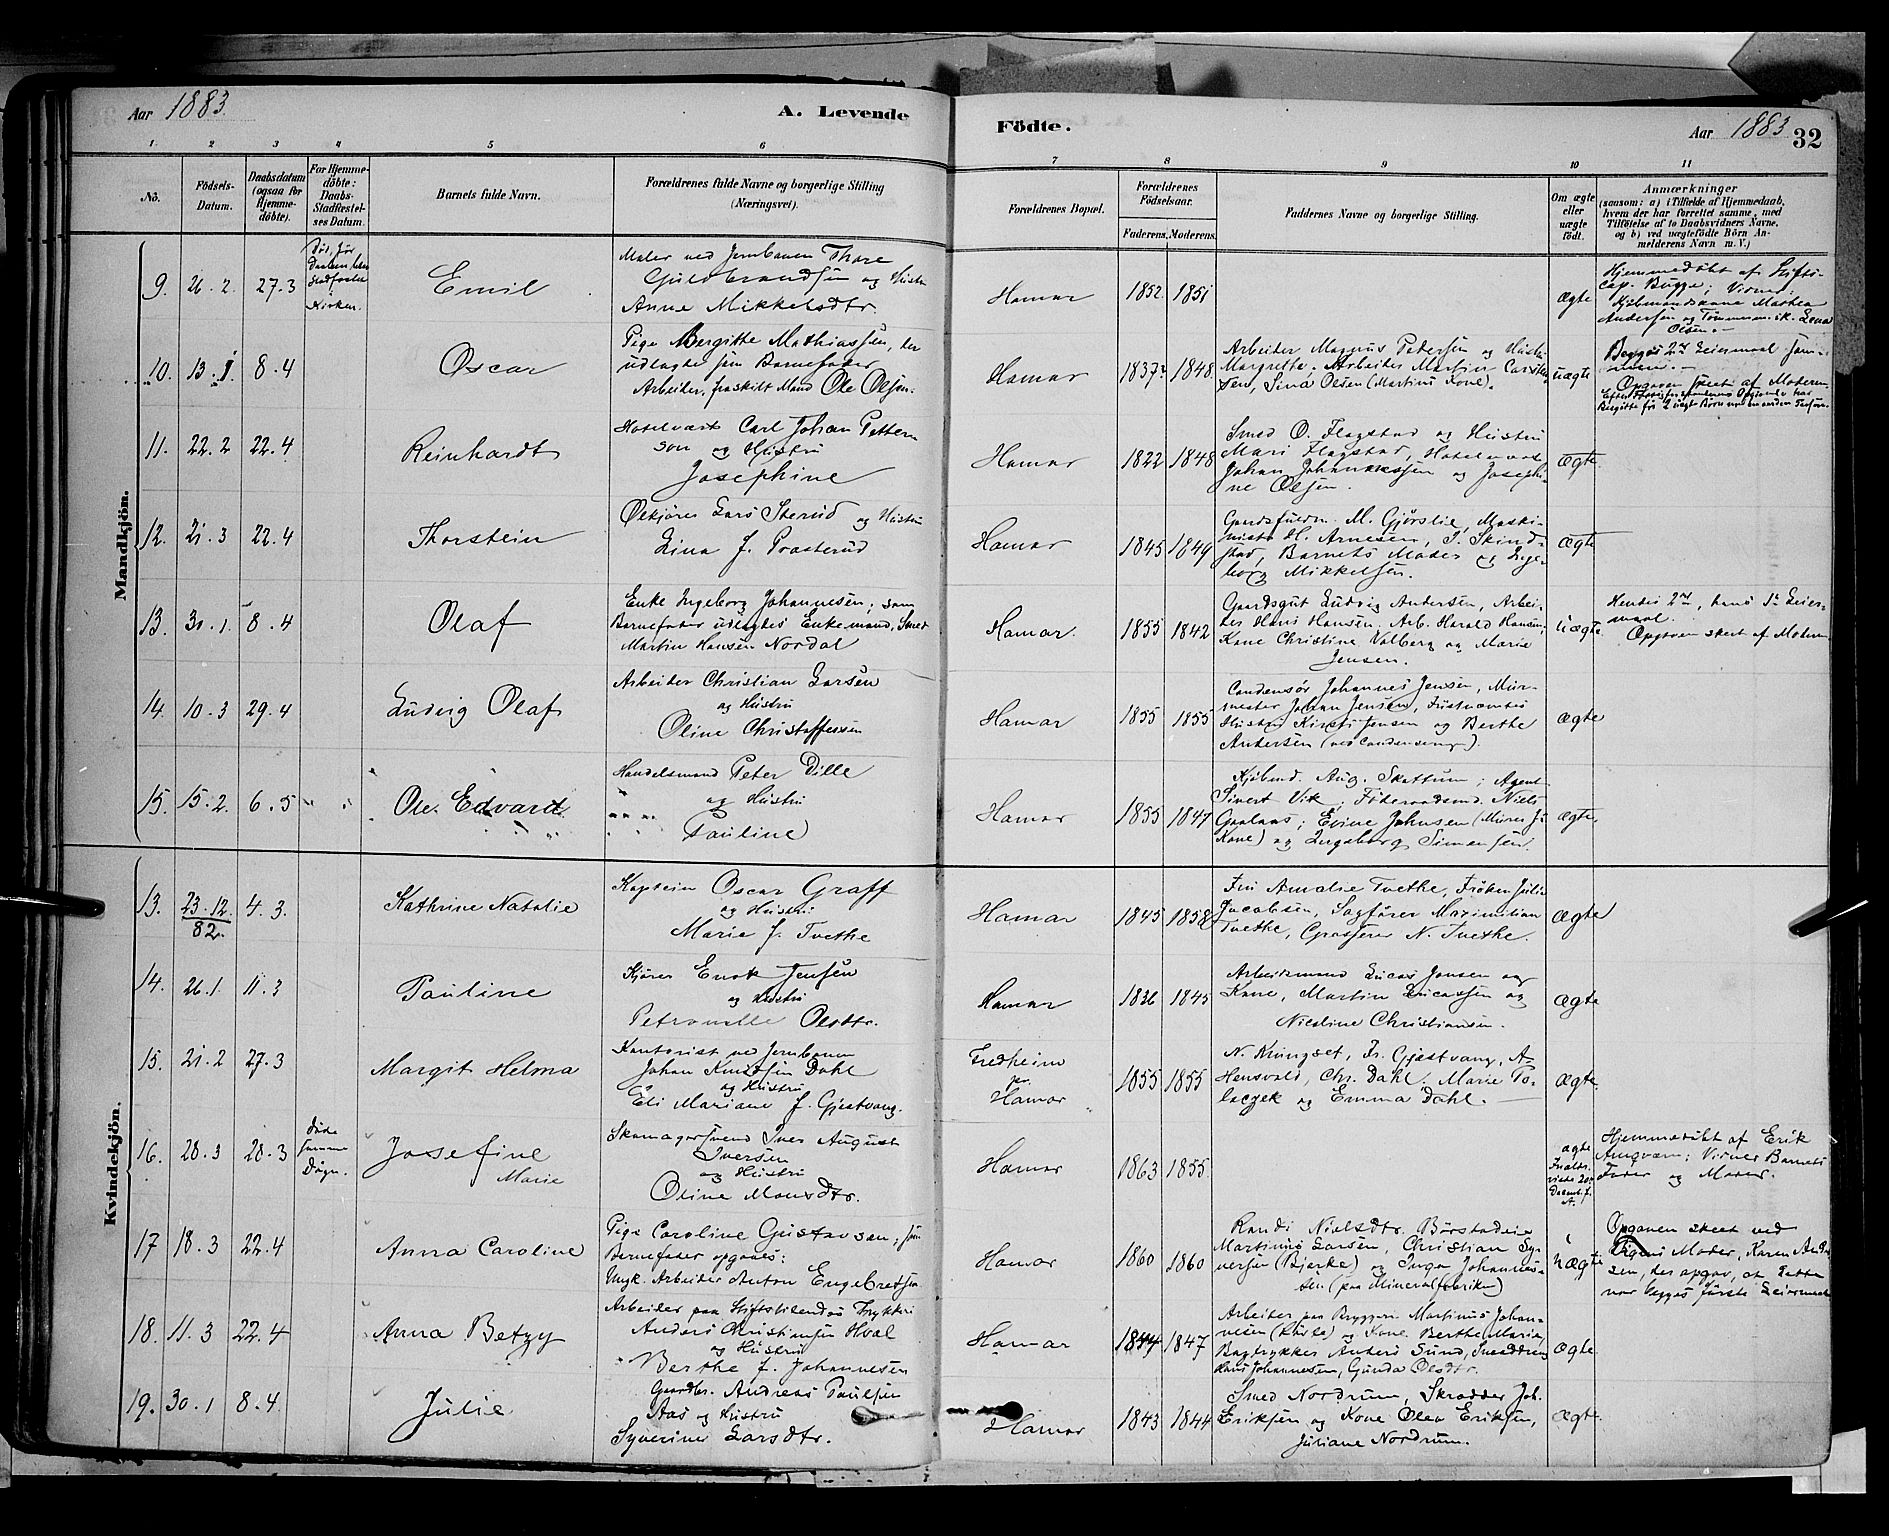 Aar 1883.
A. Levende
Födte.
Aar 1883
32
1.
2
3
4
5
6
7
8
9
10
11
No.
Födsels-
Datum.
Daabsdatum
(ogsaa for
Hjemme-
döbte).
For Hjemme-
döbte:
Daabs-
Stadfæstel-
ses Datum.
Barnets fulde Navn.
Forældrenes fulde Navne og borgerlige Stilling
(Næringsvei).
Forældrenes Bopæl.
Forældrenes
Födselsaar.
Faderens.
Moderens.
Faddernes Navne og borgerlige Stilling.
Om ægte
eller
uægte
födt.
Anmærkninger
(saasom: a) i Tilfælde af Hjemmedaab,
hvem der har forrettet samme, med
Tilföielse af to Daabsvidners Navne,
og b) ved uægtefödte Börn An-
melderens Navn m. V.)
Mandkjön.
9. 26.2 27.3
Død før
Daaben blev
stadfæstet
Kirken.
Emil
Maler ved Jernbanen Thore
Guldbrandsen og Hustru
Anne Mikkelsdtr.
Hamar 1852. 1851
ægte
Hjemmedøbt af Stifts-
cap. Bugge; Vidner:
Kjøbmandsenke Marthea
Andersen og Tømmerm.sk. Lena
Olsen.
10. 13.1 8.4
Oscar
Pige Bergitte Mathiassen, der
udlagde som Barnefader
Arbeider, fraskilt Mand Ole Olsen.
Hamar 1837? 1848.
Arbeider Magnus Petersen og Hustru
Margrethe, Arbeider Martin Carlsen
Sina Olsen (Martins Kone).
uægte
Begges 2det Leiermaal sam-
men.
Opgaven skeet af Moderen.
11. 22.2 22.4
Reinhardt
Hotelvært Carl Johan Petter-
son og Hustru
Josephine
Hamar 1822 1848
Smed O. Flagstad og Hustru
Mari Flagstad, Hotelvært
Johan Johannessen og Josephi-
ne Olsen.
ægte
12. 21.3 22.4
Thorstein
Ølkjører Lars Sterud og Hustru
Lina f. Prosterud
Hamar 1845 1849
Gaardsfuldm. M. Gjørslie, Maski-
nist H. Arnesen, I. Skind-
stad, Barnets Moder og Inge-
borg Mikkelsen.
ægte
13. 30.1. 8.4
Olaf
Enke Ingeborg Johannesen; som
Barnefader udlagdes Enkemand, Smed
Martin Hansen Nordal
Hamar. 1855 1842
Gaardsgut Ludvig Andersen, Arbei-
der Hans Hansen. Arb. Harald Hansen,
Kone Christine Valberg og Marie
Jensen.
uægte
Hendes 2det, hans 1ste Leier-
maal.
Opgaven skeet af Moderen
14. 10.3 29.4
Ludvig Olaf
Arbeider Christian Larsen
og Hustru
Oline Christoffersen
Hamar 1855 1855
Condensør Johannes Jensen, Mur-
mester Johan Jensen, Sidstnævntes
Hustru Kirsti Jensen og Berthe
Andersen (ved Condenseringen).
ægte
15. 15.2. 6.5
Ole Edvard
Handelsmand Peter Dille
og Hustru
Pauline
Hamar 1855 1847
Kjøbmd. Aug. Skattum; Agent
Sivert Vik; Føderaadsmd. Niels
Gaalaas; Eline Johnsen (Murer J's
Kone) og Ingeborg Simensen.
ægte.
Kvindekjön.
13. 23.12.
82. 4.3.
Kathrine Natalie
Kaptein Oscar Graff
og Hustru
Marie f. Tvethe
Hamar 1845 1858
Fru Amalie Tvethe, Frøken Julie
Jacobsen, Sagfører Maximilian
Tvethe, Grosserer N. Tvethe.
ægte
14. 26.1. 11.3
Pauline
Kjører Enok Jensen
og Hustru
Petronelle Olsdtr.
Hamar 1836 1845
Arbeidsmand Lucas Jensen og
Kone, Martin Lucassen og
Nicoline Christiansen.
ægte
15. 21.2 27.3
Margit Helma
Kontorist ved Jernbanen
Johan Knudsen Dahl
og Hustru
Eli Mariane f. Gjestvang.
Fredheim
pr.
Hamar 1855 1855
N. Kringset, Fr. Gjestvang, A.
Hensvald, Chr. Dahl, Marie To-
leczek og Emma Dahl.
ægte.
16. 20.3 20.3
døde
samme
Døgn.
Josefine
Marie
Skomagersvend Iver August
Iversen
og Hustru
Oline Monsdtr.
Hamar 1863 1855.
ægte
Hjemmedøbt af Erik
Amqvam; Vidner Barnets
Fader og Moder.
17 18.3 22.4
Anna Caroline
Pige Caroline Gustavsen; som
Barnefader opgaves:
Ungk. Arbeider Anton Engebretsen
Hamar 1860 1860
Randi Nielsdtr. Børstadeie
Martinus Larsen, Christian Sy-
versen (Bjerke) og Inga Johannes-
sen (paa Mineralfabriken)
uægte
Opgaven skeet ved
Pigens Moder, Karen An-
sen, der opgav, at dette
var begges første Leiermaal
18. 11.3 22.4
Anna Betzy
Arbeider paa Stiftstidendes Trykkeri
Anders Christiansen Hval
og Hustru
Berthe f. Johannesen
Hamar 1847 1847
Arbeider paa Bryggeri Martinus Johan-
nesen og Kone Berthe Marie,
Bogtrykker Anders Sund, Smeddreng
Hans Johannesen, Gunda Olsdtr.
ægte
19. 30.1 8.4
Julie
Gaardbr. Andreas Paulsen
Aas og Hustru
Syverine Larsdtr.
Hamar 1843 1844
Smed Nordrum, Skrædder Joh.
Eriksen og Kone Olea Eriksen,
Juliane Nordrum.
ægte